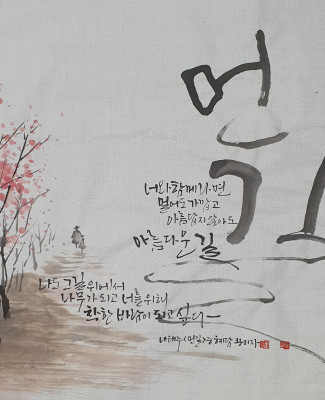 먼
길
너와 함께라면
멀어도 가깝고
아름답지 않아도
아름다운 길
나도 그 길 위에서
나무가 되고 너를 위해
착한 바람이 되고 싶다
나태주 <먼길>